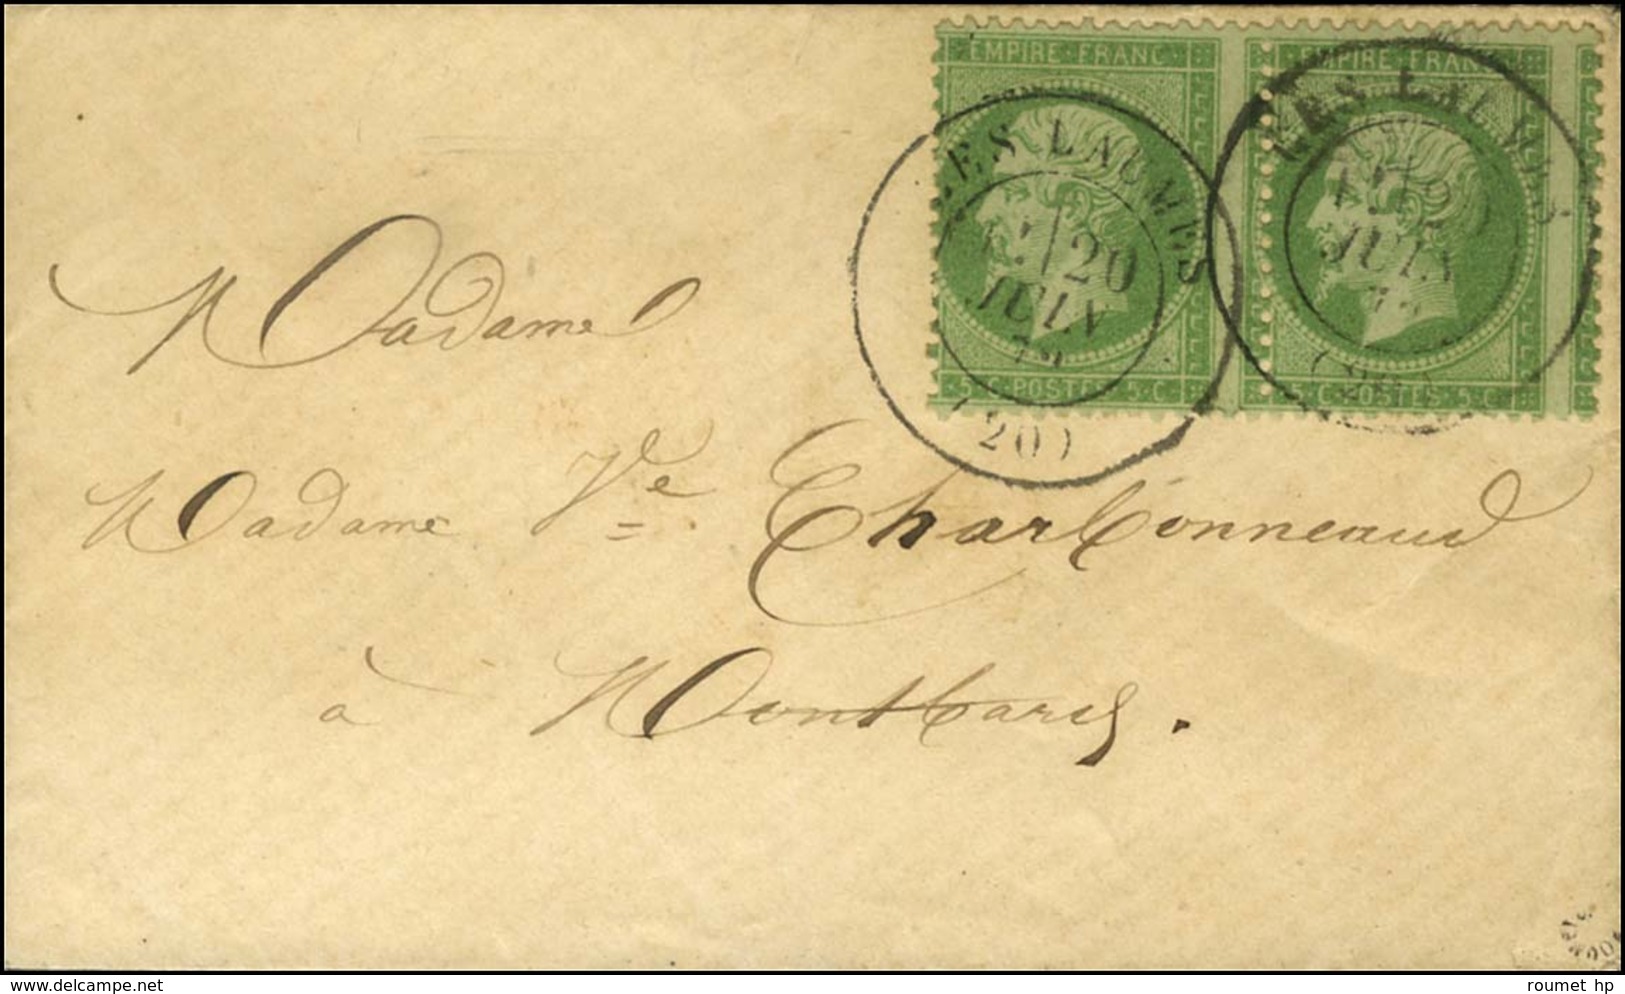 EMPIRE FRANC EMPIRE FRANC
LES LAUMES
20
JUIN
(20)
5·C·POSTES·5·C 5·C·POSTES·5·C
Madame
Madame Ve Charbonneaud
à Montbard.
www.delcampe.net
roumet hp